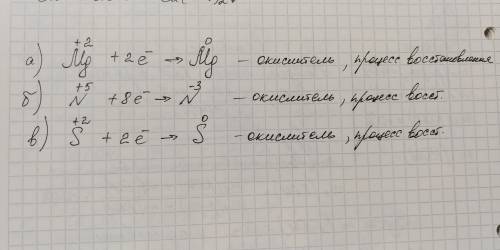 а) Mg⁺² + 2e⁻ → Mg⁰ – окислитель, процесс восстановления
б) N⁺⁵ + 8e⁻ → N⁻³ – окислитель, процесс восст.
в) S⁺² + 2e⁻ → S⁰ – окислитель, процесс восст.